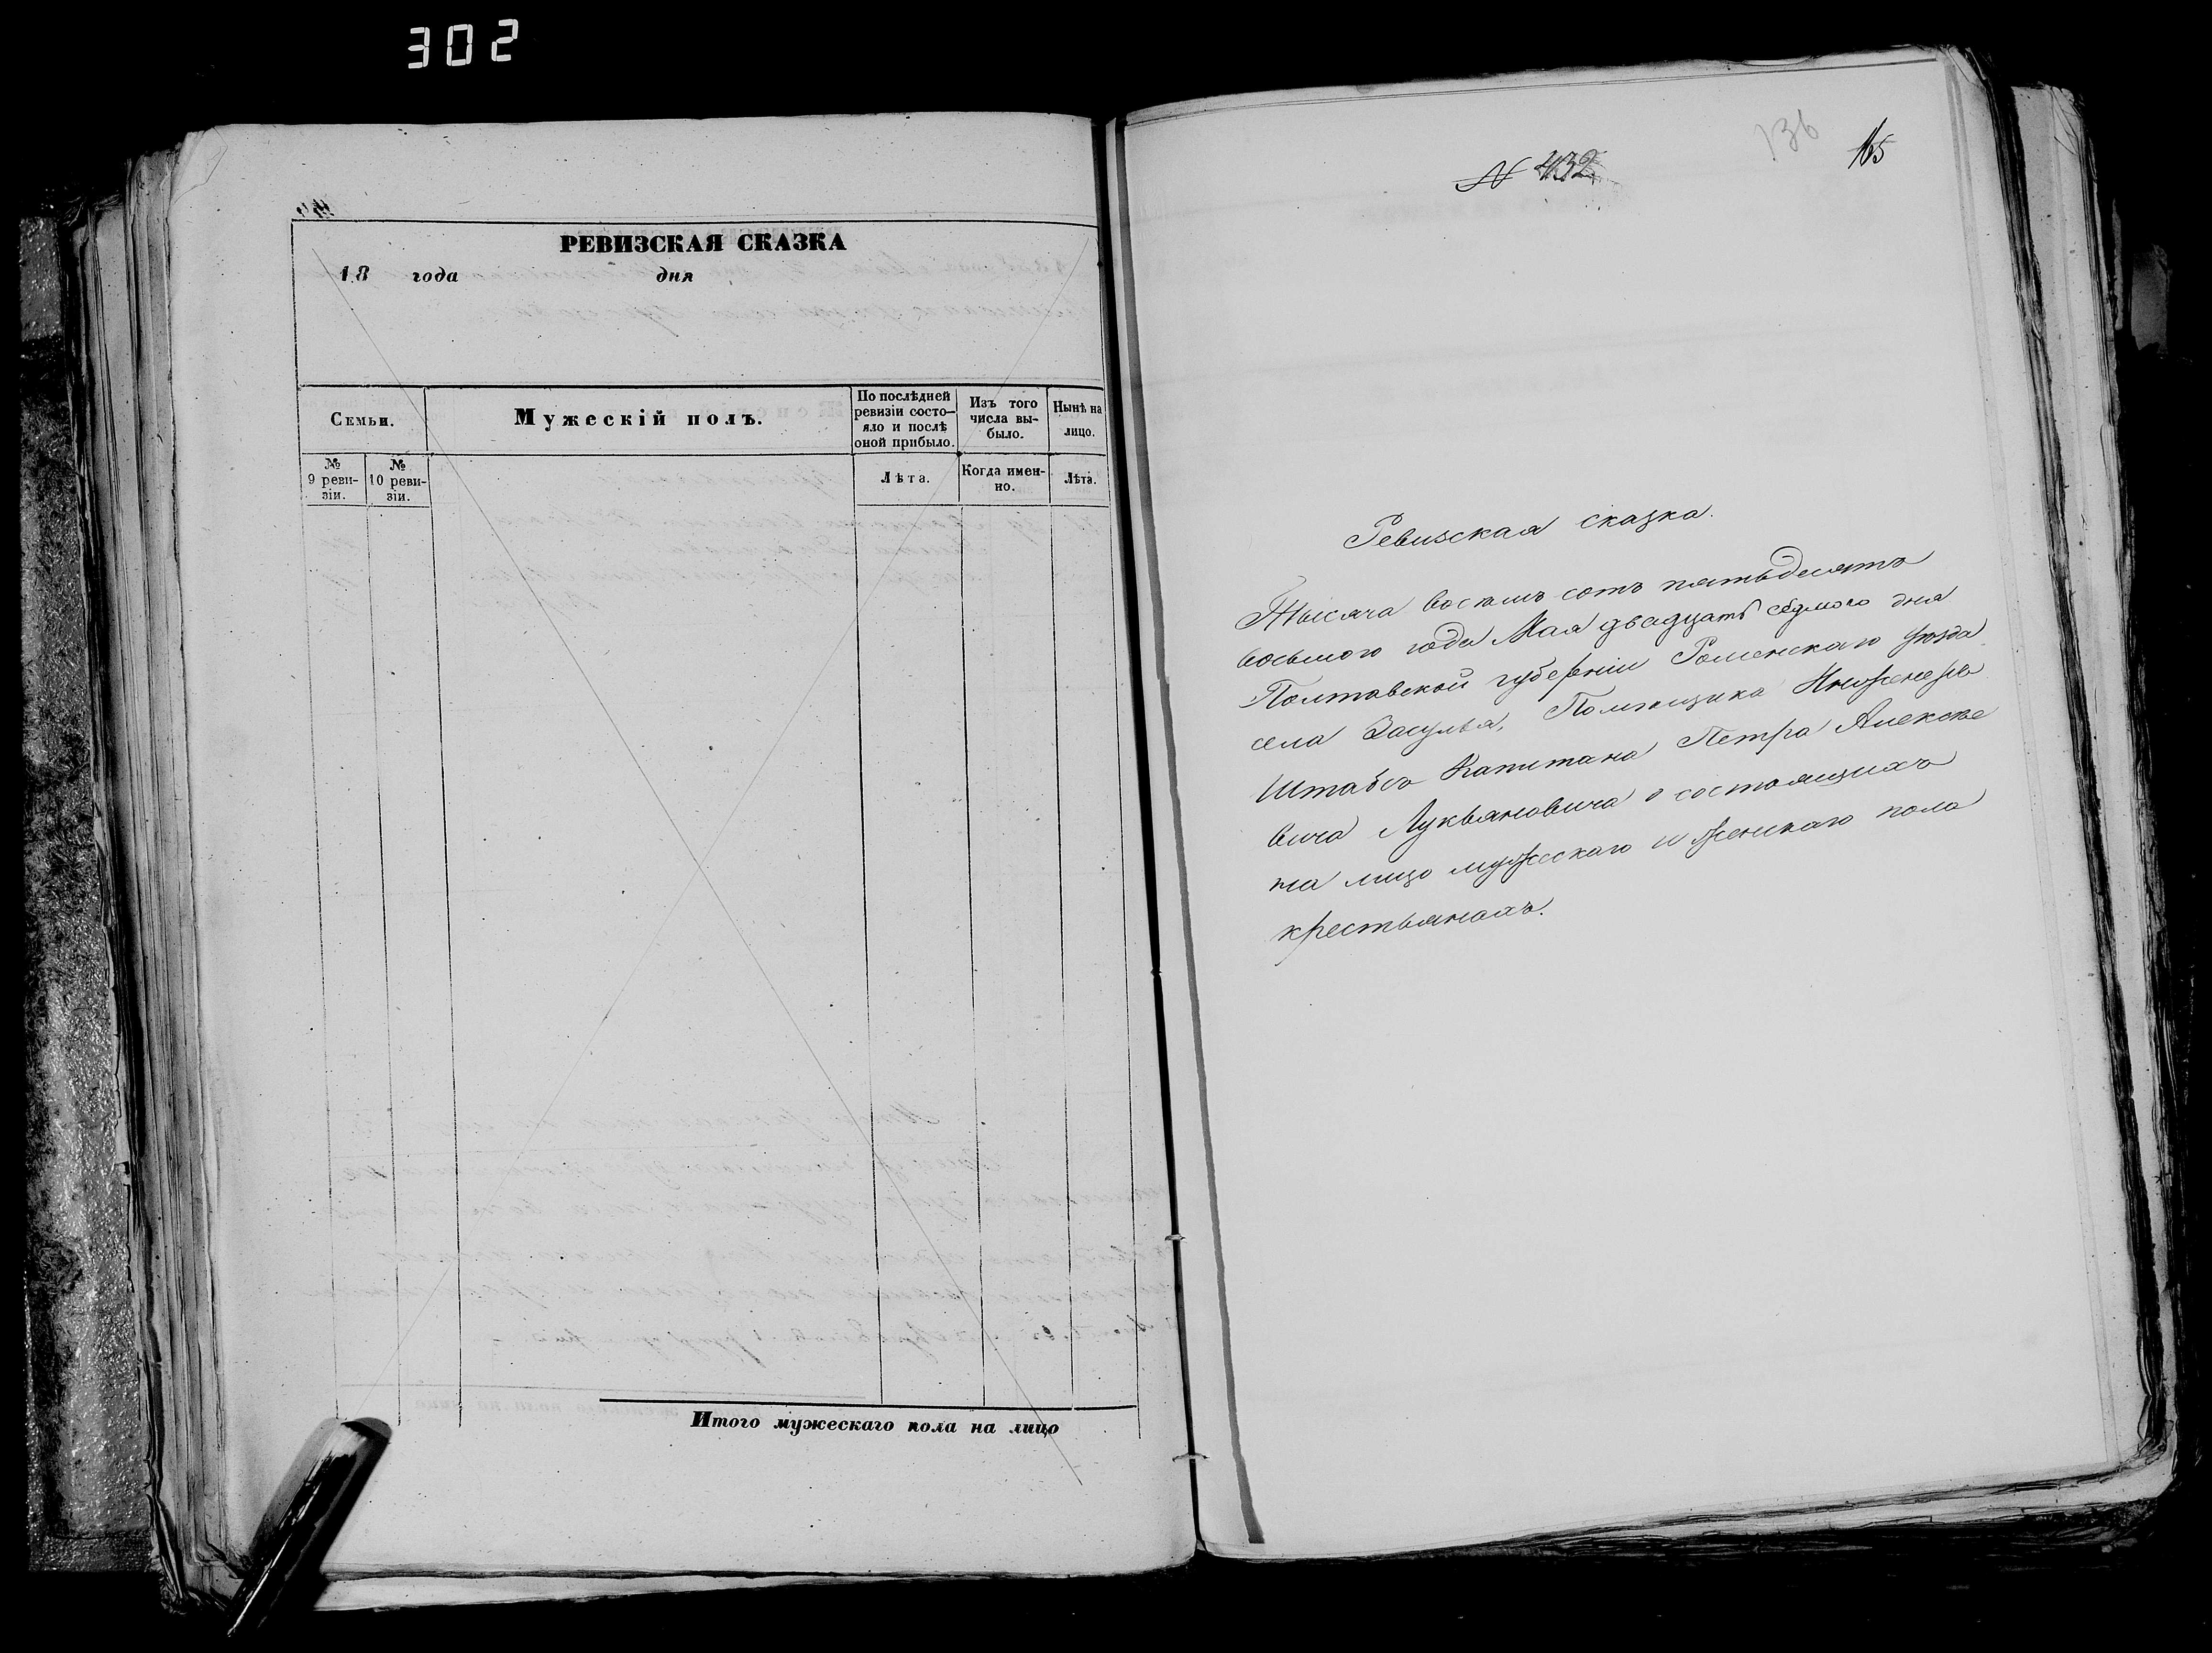 302
РЕВИЗСКАЯ СКАЗКА
18 года дня
Семьи.
Мужескій полъ.
По послѣдней ревизіи состо-
яло и послѣ
оной прибыло.
Изъ того
числа вы-
было.
Нынѣ на
лицо.
№
9 реви-
зіи.
№
10 реви-
зіи.
Лѣта.
Когда имен-
но.
Лѣта.
Итого мужескаго пола на лицо
N 432
136
165
Ревизская сказка.
Тысяча восемь сотъ пятьдесятъ
восьмого года Мая двадцать седмого дня
Полтавской губерніи Роменскаго уѣзда
села Засулья, Помѣщика Инженеръ
Штабсъ Капитана Петра Алексѣе
вича Лукьяновича о состоящихъ
на лицо мужескаго и женскаго пола
крестьянахъ.